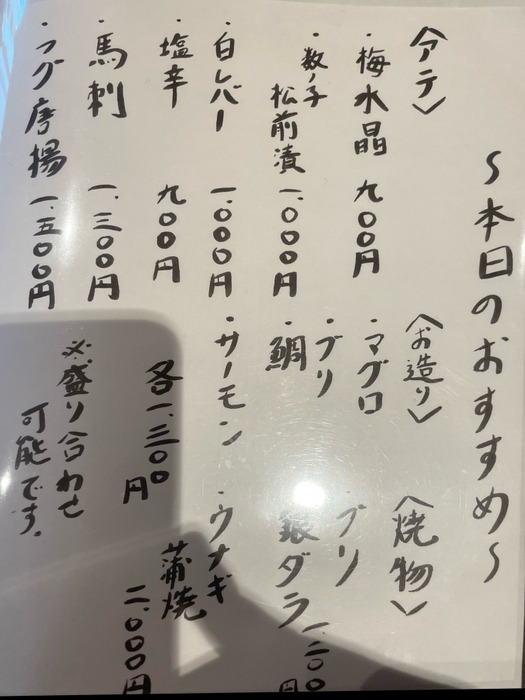 ～本日のおすすめ～
〈アテ〉
・梅水晶 九〇〇円
・数ノ子
松前漬 一、〇〇〇円
・白レバー 一、〇〇〇円
・塩辛 九〇〇円
・馬刺 一、三〇〇円
・フグ唐揚 一、五〇〇円
〈お造り〉
・マグロ
・ブリ
・鯛
・サーモン
各一、三〇〇円
※盛り合わせ
可能です。
〈焼物〉
・ブリ
銀ダラ
・ウナギ
蒲焼
二、〇〇〇円